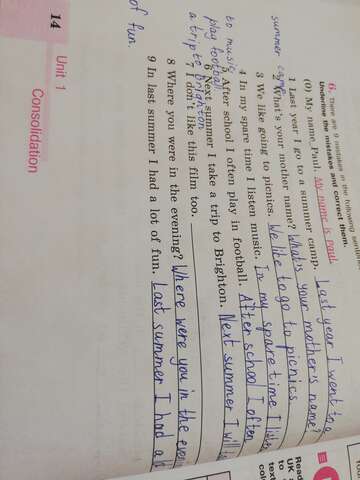 6. There are 9 mistakes in the following
Underline the mistakes and correct them.
(0) My name Paul. My name is Paul.
1 Last year I go to a summer camp. Last year I went to a
summer camp.
2 What's your mother name? What's your mother's name?
3 We like going to picnics. We like to go to picnics.
4 In my spare time I listen music. In my spare time I listen
to music
5 After school I often play in football. After school I often
play football
6 Next summer I take a trip to Brighton. Next summer I will
a trip to brighton
7 I don't like this film too.
8 Where you were in the evening? Where were you in the
9 In last summer I had a lot of fun. Last summer I had a
of fun.
14 Unit 1 Consolidation
Read
UK
to
text